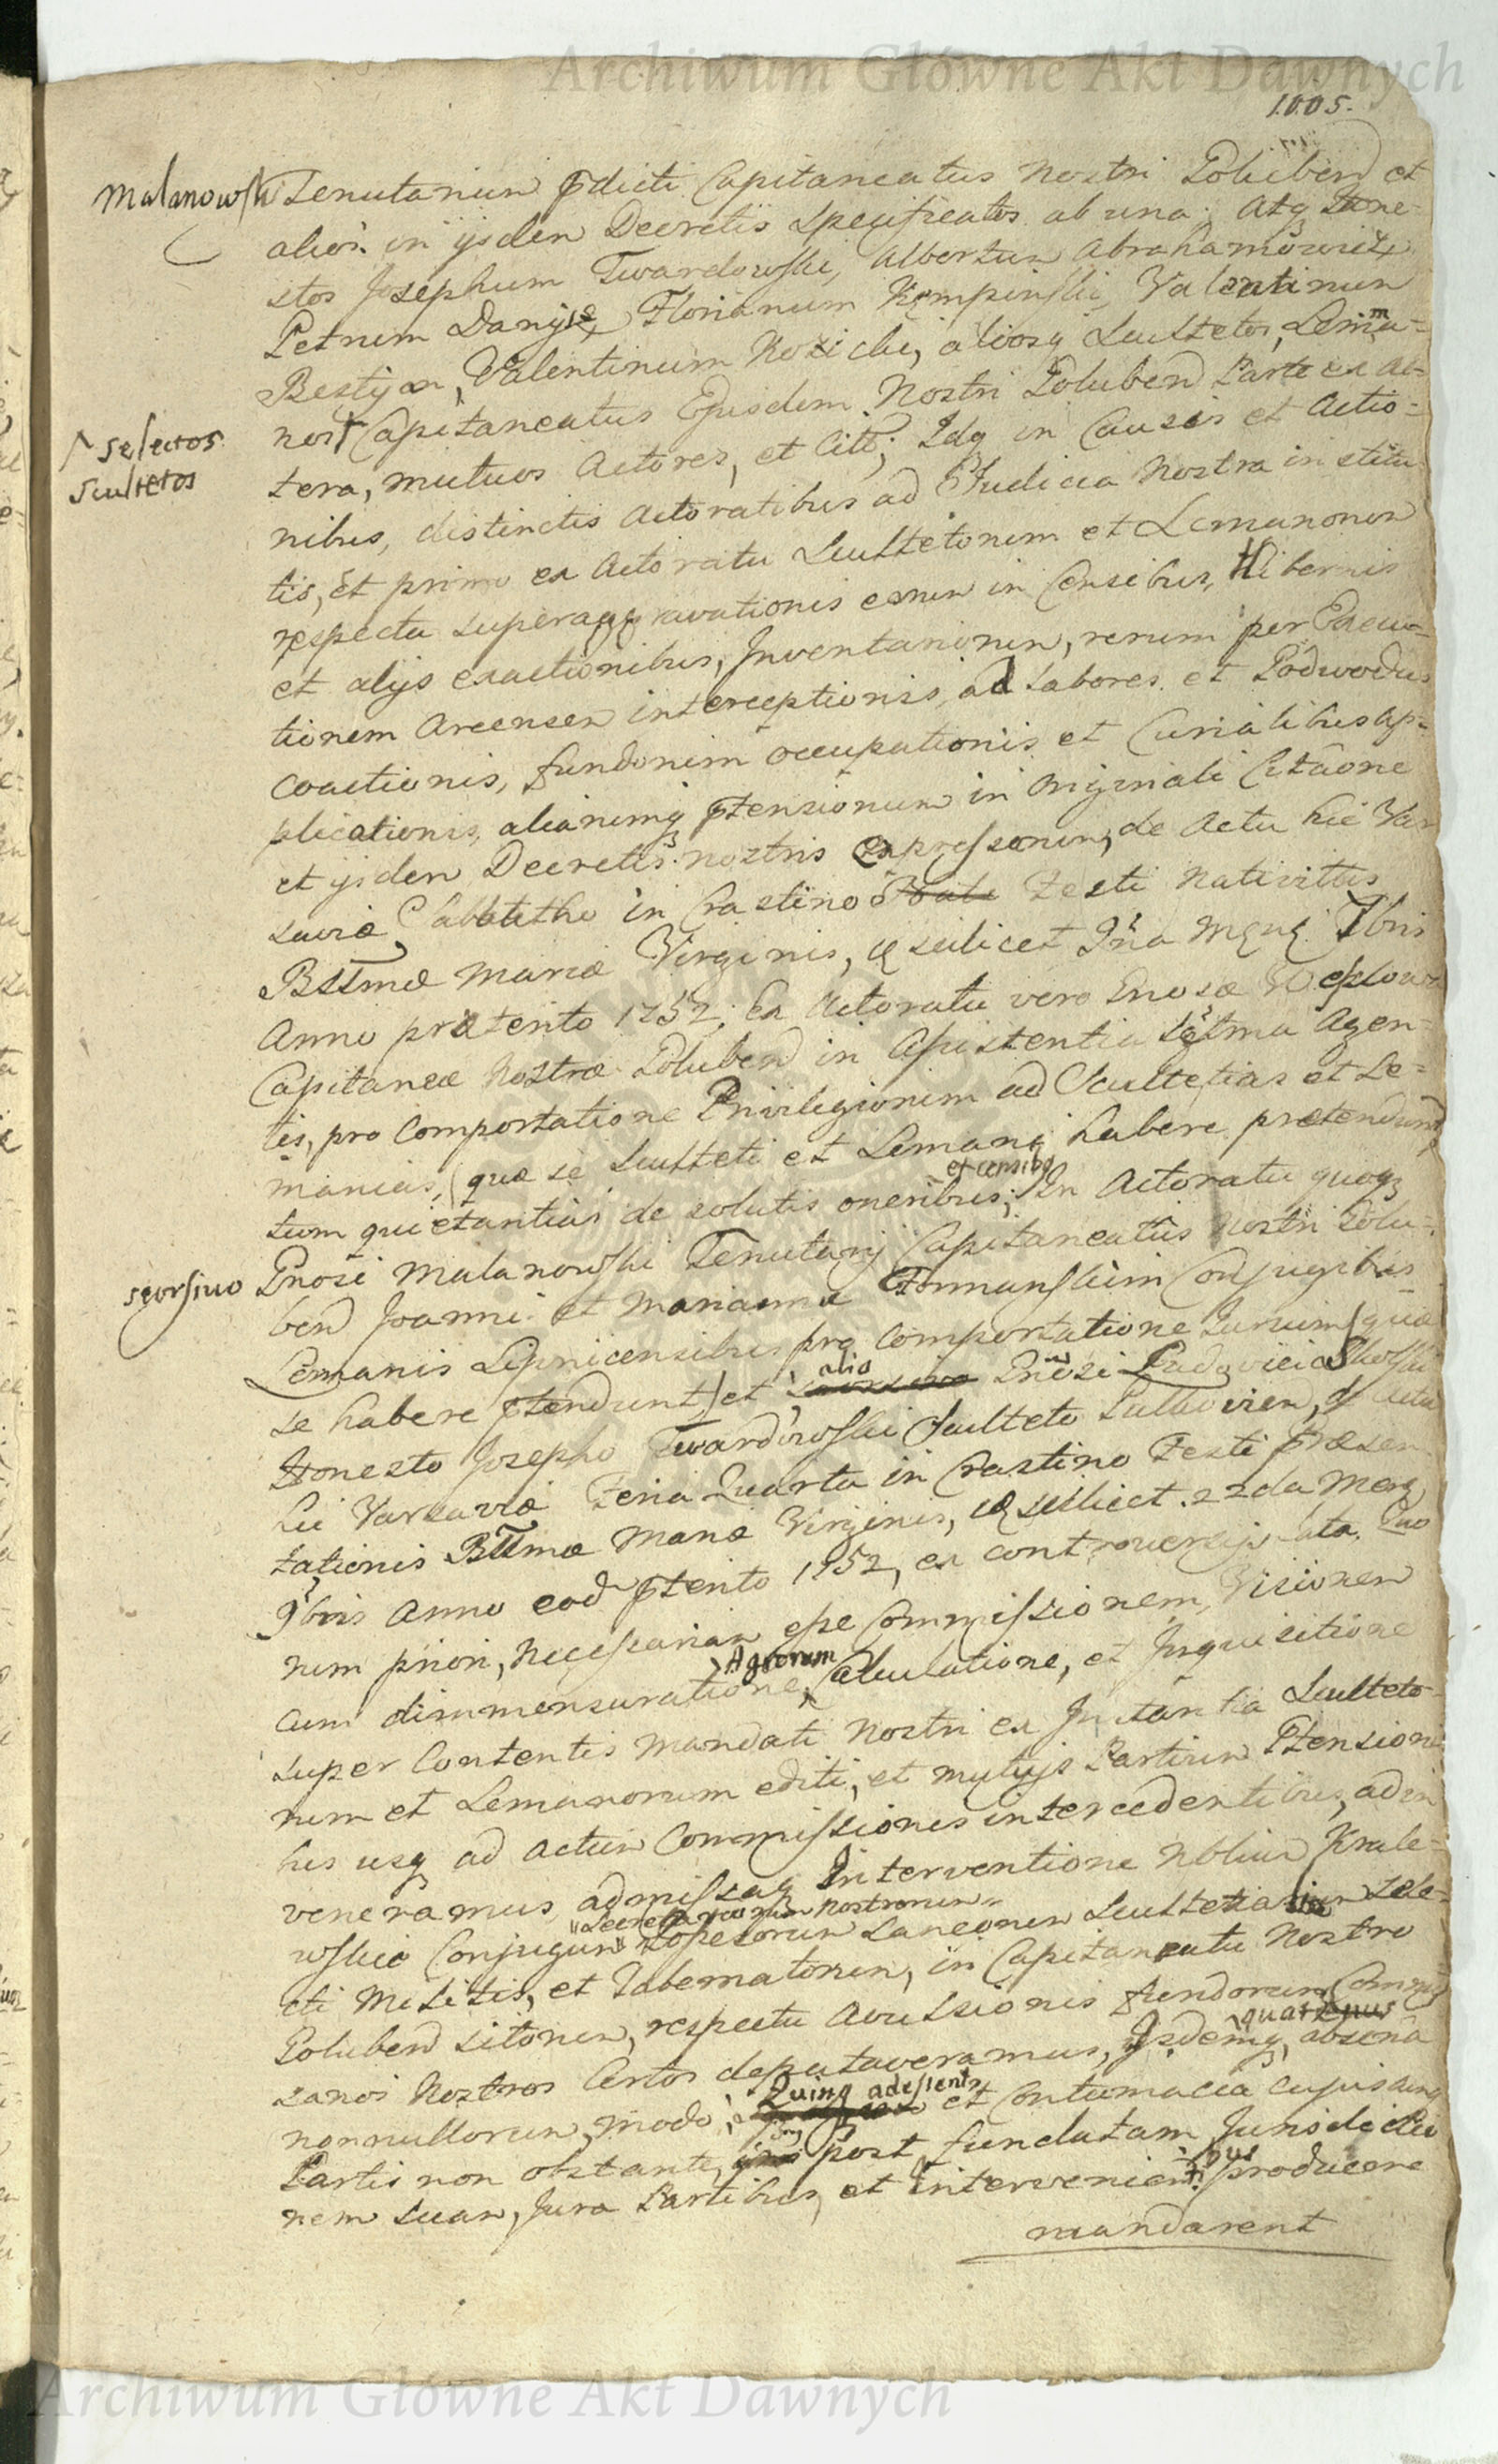 Archiwum Główne Akt Dawnych
1005.
Malanowski Tenutarium pdicti Capitaneatus Nostri Boluben et
alios in ijsden Decretis specificatos ab una; Atq Hone-
stos Josephum Twardowski, Albertum Abrahamowicz
Petrum Danysz, Florianum Kempinski, Valentinum
Bestyan, Valentinum Kozicki, aliosq Scultetos, Lema-
nos Capitaneatus Ejusdem Nostri Boluben Parte ex al-
selectos
scultetos
tera, mutuos Actores, et Citt; Idq in Causis et Actio-
nibus, distinctis Actoratibus ad Judicia Nostra institu
tis, Et primo ex Actoratu Scultetorum et Lemanorum
respectu superaggravationis eorum in Censibus, Hibernis
et alijs exactionibus, Inventariorum, rerum per Execu-
tionem Arcensem interceptionis, ad labores et Podwodas
coactionis, fundorum occupationis et Curialibus ap-
plicationis, aliarumq ptensionum in originali Citaone
et ijsden Decretis nostris expressorum, de Actu hic Var
saviæ Sabbatho in Crastino Festi Nativittis
Bttmæ Mariæ Virginis, scilicet Mensis 7bris
Anno præterito 1752; Ex Actoratu vero Gnosæ
Capitaneæ Nostræ Boluben in Assistentia Agen-
tis, pro Comportatione Privilegiorum ad Scultetias et Le-
manias, (quæ se Sculteti et Lemani habere prætendunt
tum quietantias de solutis oneribus; et censibs In Actoratu quoq
scorsivo Gnosi Malanowski Tenutarij Capitaneatus Nostri Bolu-
ben Joanni et Mariannæ Conjugibus
Lemanis Lipnicensibus pro Comportatione Jurium (quæ
se habere ptendunt) et alio Gnosi
Honesto Josepho Twardowski Sculteto de actu
hic Varsaviæ Feria Quarta in Crastino Festi Præsen
tationis Bttmæ Mariæ Virginis, scilicet 22da Mens
9bris Anno eod pterito 1752, ex controversijs lata. Quo
rum priori, Necessariam esse Commissionem, Visionem
cum dimmensuratione Agrorum Calculatione, et Inquisitione
super Contentis Mandati Nostri ex Instantia Sculteto
rum et Lemanorum editi, et mutuijs Partium Ptensioni
bus usq ad Actum Commissionis intercedentibus, adin
veneramus, admissaq Interventione Nblium Krale-
wskie Conjugum Secretariorum Nostrorum Possessorum Laneorum Scultetialium Sele-
cti Militis, et Tabernatorum, in Capitaneatu Nostro
Boluben sitorum, respectu Avulsionis fundorum, Commis
sarios Nostros Certos deputaveramus, Ijsdemq, absentia
nonnullorum, modo quatuor Quinq adessent et Contumacia cujuscunq
Partis non obstante, post fundatam Jurisdictio
nem suam, Jura Partibus et Intervenientibus producere
mandarent
Archiwum Główne Akt Dawnych